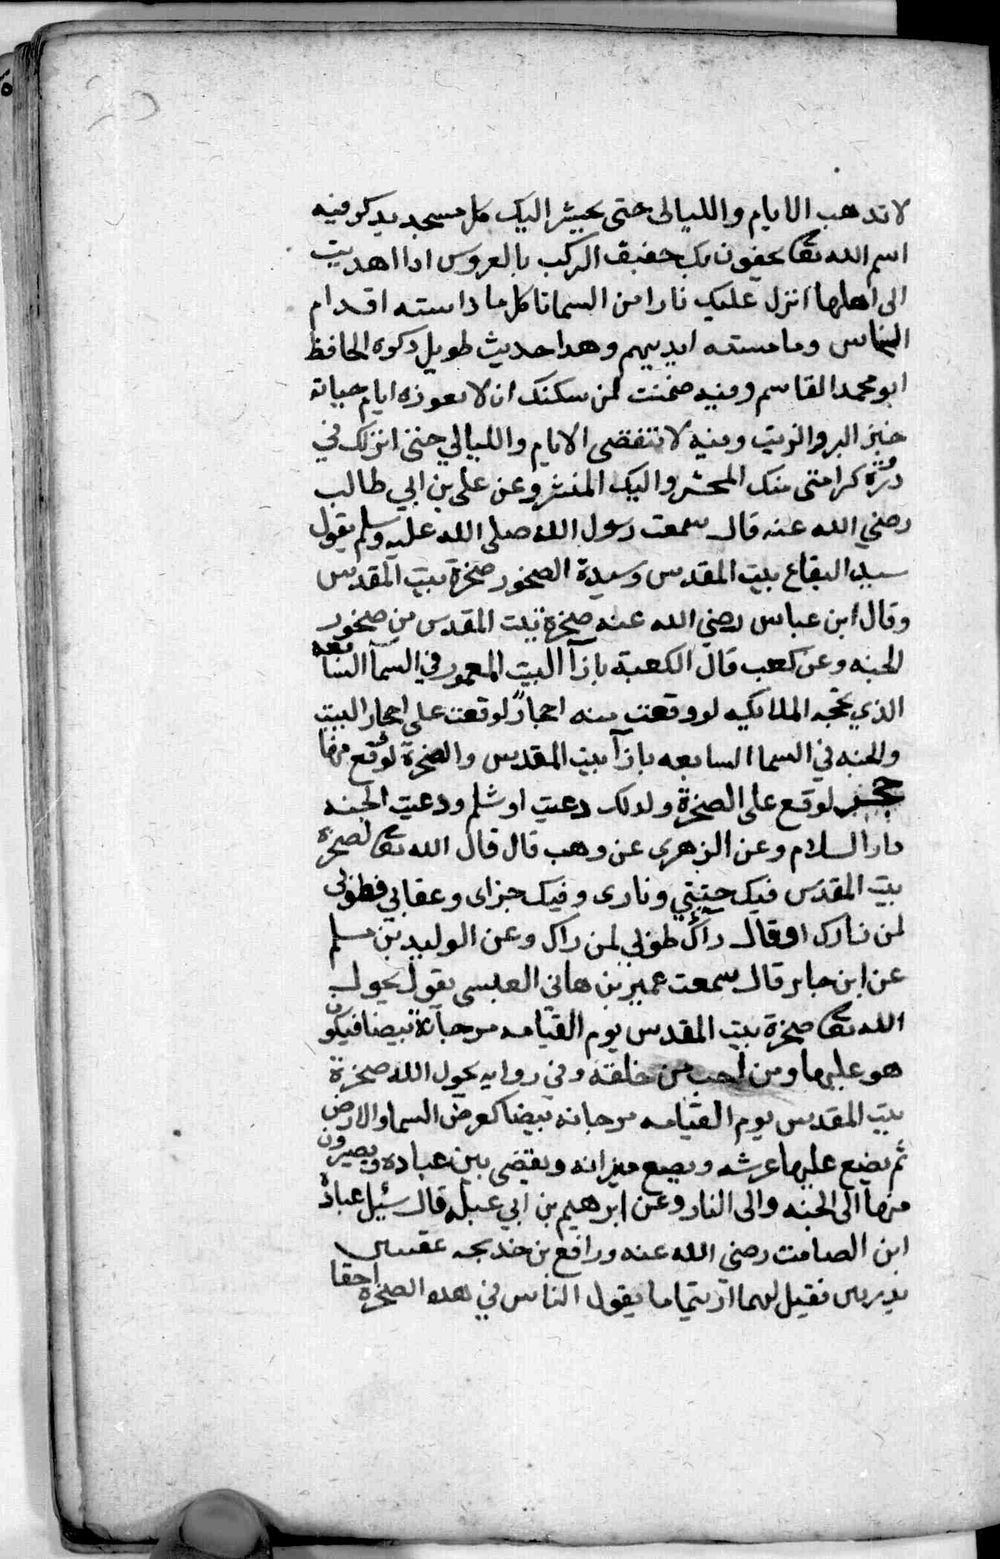 لا تذهب الايام والليالى حتى يحشر اليك كل مسجد يذكر فيه
اسم الله تعا يحفون بك حفيف الركب بالعروس اذا اهديت
الى اهلها انزل عليك نارا من السما تاكل ما داسته اقدام
الناس وما مسته ايديهم وهدا حديث طويل ذكره الحافظ
ابو محمد القاسم وفيه ضمنت لمن سكنك ان لا يعوزه ايام حياته
خبز البر والزيت وفيه لا تنقضى الايام والليالي حتى انزلك في
ذروة كرامتى منك المحشر واليك المنشر وعن على بن ابي طالب
رضي الله عنه قال سمعت رسول الله صلى الله عليه وسلم يقول
سيد البقاع بيت المقدس وسيدة الصخور صخرة بيت المقدس
وقال ابن عباس رضي الله عنه صخرة بيت المقدس من صخور
الجنه وعن كعب قال الكعبة بازآ البيت المعمور في السمآ السابعه
الذي تحجه الملايكه لو وقعت منه احجارً لوقعت على احجار البيت
والجنه في السما السابعه بازآ بيت المقدس والصخرة لو وقع منها
حجر لوقع على الصخرة ولدلك دعيت اوشلم ودعيت الجنه
دار السلام وعن الزهرى عن وهب قال قال الله تعا لصخرة
بيت المقدس فيك جنتي ونارى وفيك جزاى وعقابي فطوبى
لمن زارك او قال رآك طوبي لمن راك وعن الوليد بن مسلم
عن ابن جابر قال سمعت عمير بن هانى العبسى يقول يحول
الله تعا صخرة بيت المقدس يوم القيامه مرجانة بيضا فيكون
هو عليها ومن احب من خلقه وفي روايه يحول الله صخرة
بيت المقدس يوم القيامه مرجانه بيضا كعرض السما والارض
ثم يضع عليها عرشه ويضع ميزانه ويقضى بين عباده ويصيرون
منها الى الجنه والى النار وعن ابرهيم بن ابي عبلة قال سئيل عبادة
ابن الصامت رضي الله عنه ورافع بن خديجه عقبيين
بدريين فقيل لهما ارايتما ما يقول الناس في هده الصخرة احقا